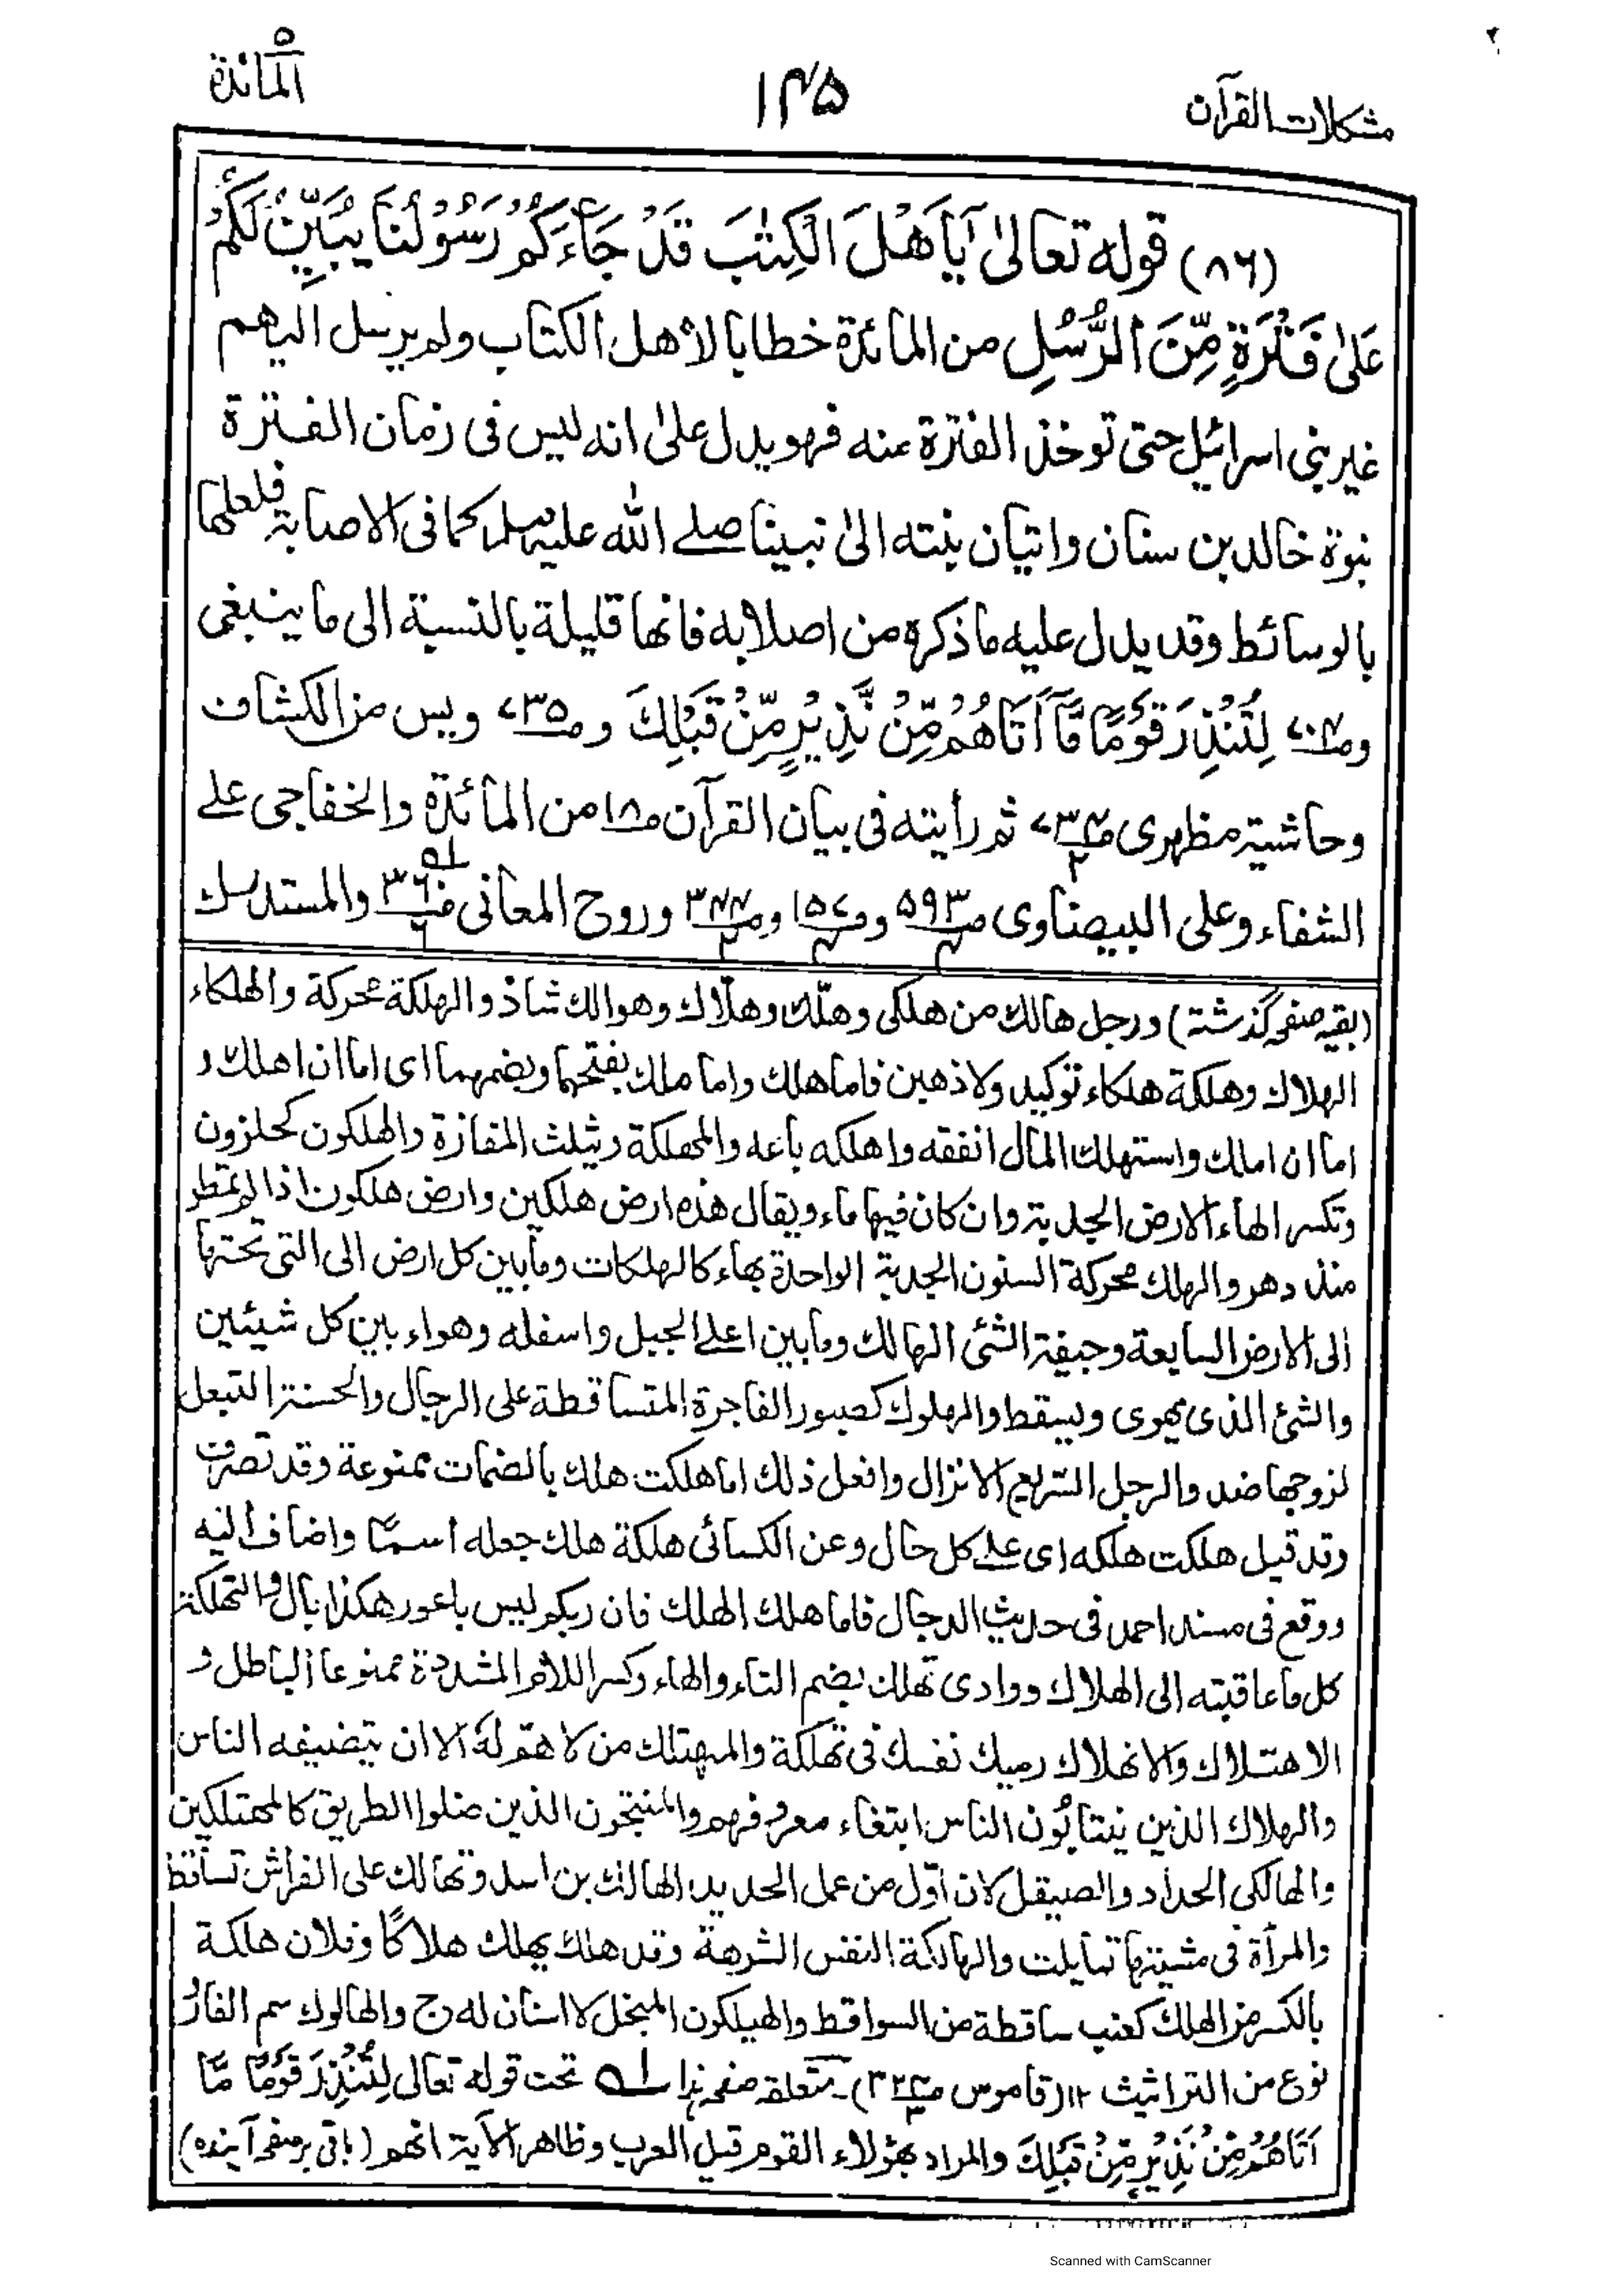 مشكلات القرآن
١٤٥
المائدة ٥
(٨٦) قوله تعالىٰ يَاَهْلَ الْكِتٰبَ قَدْ جَاءَكُمْ رَسُوْلُنَا يُبَيِّنُ لَكُمْ
عَلىٰ فَتْرَةٍ مِّنَ الرُّسُلِ من المائدة خطابا لاهل الكتاب ولم يرسل اليهم
غير بنى اسرائيل حتى توخذ الفترة عنه فهو يدل علىٰ انه ليس فى زمان الفترة
نبوة خالد بن سنان واتيان بنته الىٰ نبينا صلے الله عليه وسلم كما فى الاصابة فلعلها
بالوسائط وقد يدل عليه ما ذكره من اصلابه فانها قليلة بالنسبة الى ما ينبغى
لِتُنْذِرَ قَوْمًا مَّآ اَتَاهُمْ مِّنْ نَّذِيْرٍ مِّنْ قَبْلِكَ و ويس من الكشاف
وحاشية مظهرى ثم رأيته فى بيان القرآن من المائدة والخفاجى علے
الشفاء وعلى البيضاوى وروح المعانى والمستدرك
(بقيه صفحه گذشتة) ورجل هالك من هلكى وهلّك وهلّاك وهوالك شاذ والهلكة محركة والهلكاء
الهلاك وهلكة هلكاء توكيد ولاذهبن فاما هلك واما ملك بفتحهما وبضمهما اى اما ان اهلك و
اما ان املك واستهلك المال انفقه واهلكه باعه والمهلكة ويثلث المفازة والهلكون كحلزون
وتكسر الهاء الارض الجدبة وان كان فيها ماء ويقال هذه ارض هلكين وارض هلكون اذا لم تمطر
منذ دهر والهلك محركة السنون الجدبة الواحدة بهاء كالهلكات وما بين كل ارض الى التى تحتها
الى الارض السابعة وجيفة الشئ الهالك وما بين اعلے الجبل واسفله وهواء بين كل شيئين
والشئ الذى يهوى ويسقط والهلوك كصبور الفاجرة المتساقطة على الرجال والحسنة التبعل
لزوجها ضد والرجل السريع الانزال وافعل ذلك اما هلكت هلك بالضمات ممنوعة وقد تصرف
وقد قيل هلكت هلكه اى علے كل حال وعن الكسائى هلكة هلك جعله اسمًا واضاف اليه
ووقع فى مسند احمد فى حديث الدجال فاما هلك الهلك فان ربكم ليس باعور هكذا بال والتهلكة
كل ما عاقبته الى الهلاك ووادى تهلك بضم التاء والهاء وكسر اللام المشددة ممنوعا الباطل و
الاهتلاك والانهلاك رميك نفسك فى تهلكة والمهتلك من لا همّ له الا ان يتضيفه الناس
والهلاك الذين ينتابون الناس ابتغاء معروفهم والمنتجعون الذين ضلوا الطريق كالمهتلكين
والهالكى الحداد والصيقل لان اوّل من عمل الحديد الهالك بن اسد وتهالك على الفراش تساقط
والمرأة فى مشيتها تمايلت والهالكة النفس الشرهة وقد هلك يهلك هلاكًا وفلان هلكة
بالكسر من الهلك كعنب ساقطة من السواقط والهيلكون المنجل لا اسنان له ج والهالوك سم الفار
نوع من التراثيث ١٢ (قاموس) متعلقه صفحه هذا تحت قوله تعالى لِتُنْذِرَ قَوْمًا مَّا
اَتَاهُمْ مِّنْ نَذِيْرٍ مِّنْ قَبْلِكَ والمراد بهؤلاء القوم قيل العرب وظاهر الآية انهم (باقى برصفحه آينده)
Scanned with CamScanner